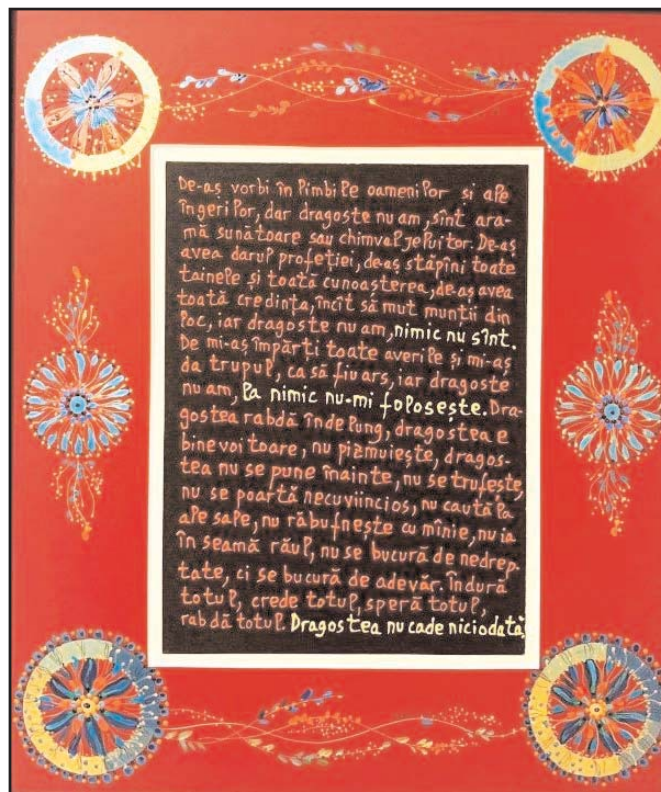 De-aș vorbi în limbile oamenilor si ale
îngerilor, dar dragoste nu am, sînt ara-
mă sunătoare sau chimval jeluitor. De-aș
avea darul profeției, de-aș stăpîni toate
tainele și toată cunoașterea, de-aș avea
toată credința, încît să mut muntii din
loc, iar dragoste nu am, nimic nu sînt.
De mi-aș împărti toate averile și mi-aș
da trupul, ca să fiu ars, iar dragoste
nu am, la nimic nu-mi folosește. Dra-
gostea rabdă îndelung, dragostea e
binevoitoare, nu pizmuiește, dragos-
tea nu se pune înainte, nu se trufește,
nu se poartă necuviincios, nu caută la
ale sale, nu răbufnește cu mînie, nu ia
în seamă răul, nu se bucură de nedrep-
tate, ci se bucură de adevăr. Îndură
totul, crede totul, speră totul,
rabdă totul. Dragostea nu cade niciodată.